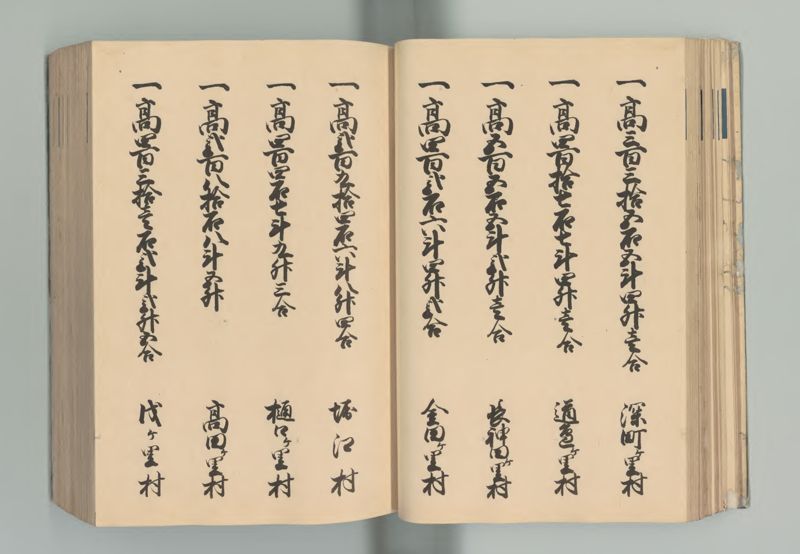 一高三百三拾五石五斗四升壱合 深町ケ里村
一高四百拾七石七斗四升壱合 道違ケ里村
一高五百五石五斗弐升壱合 長神田ケ里村
一高四百弐石六斗四升弐合 金田ケ里村
一高弐百九拾四石六斗八升四合 堀江村
一高四百四石七斗九升三合 樋口ケ里村
一高弐百八拾石八斗五升 高田ケ里村
一高四百三拾壱石弐斗弐升五合 戊ケ里村